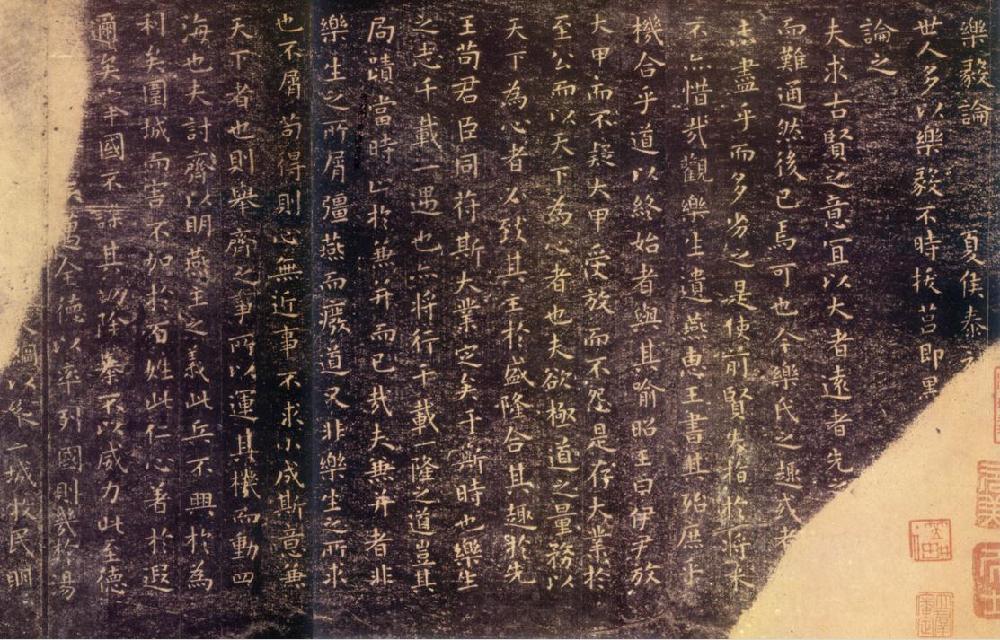 樂毅論 夏侯泰
世人多以樂毅不時拔莒即墨
論之
夫求古賢之意宜以大者遠者先
而難通然後已焉可也今樂氏之趣或者
其未盡乎而多劣之是使前賢失指於將來
不亦惜哉觀樂生遺燕惠王書其殆庶乎
機合乎道以終始者與其喻昭王曰伊尹放
大甲而不疑大甲受放而不怨是存大業於
至公而以天下為心者也夫欲極道之量務以
天下為心者必致其主於盛隆合其趣於先
王苟君臣同符斯大業定矣于斯時也樂生
之志千載一遇也亦將行千載一隆之道豈其
局蹟當時止於兼并而已哉夫兼并者非
樂生之所屑彊燕而廢道又非樂生之所求
也不屑苟得則心無近事不求小成斯意兼
天下者也則舉齊之事所以運其機而動四
海也夫討齊以明燕主之義此兵不興於為
利矣圍城而害不加於百姓此仁心著於遐
邇矣舉國不謀其功除暴不以威力此至德
全德以率列國則幾於湯
以候一城校民明